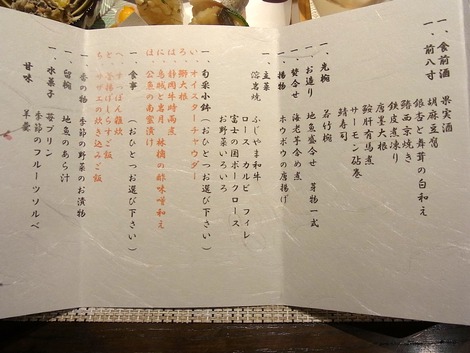 一、食前酒　果実酒
一、前八寸
胡麻豆腐
銀杏と舞茸の白和え
鰆西京焼き
鉄皮煮凍り
唐墨大根
鮟肝有馬煮
サーモン砧巻
鯖寿司
一、先椀　若竹椀
一、お造り　地魚盛合せ　芽物一式
一、焚合せ　海老芋含め煮
一、揚物　ホウボウの唐揚げ
一、主菜　ふじやま和牛
溶岩焼　ロース　カルビ　フィレ
富士の国ポークロース
お野菜いろいろ
一、旬菜小鉢　（おひとつお選び下さい）
い、オイスターチャウダー
ろ、鰤大根
は、静岡牛時雨煮
に、鳥賊と若月　林檎の酢味噌和え
ほ、公魚の南蛮漬け
一、食事　（おひとつお選び下さい）
へ、すっぽん雑炊
と、釜揚げしらすご飯
ち、サザエの炊き込みご飯
一、香の物　季節の野菜のお漬物
一、留椀　地魚のあら汁
一、水菓子　苺プリン
季節のフルーツソルベ
甘味　羊羹